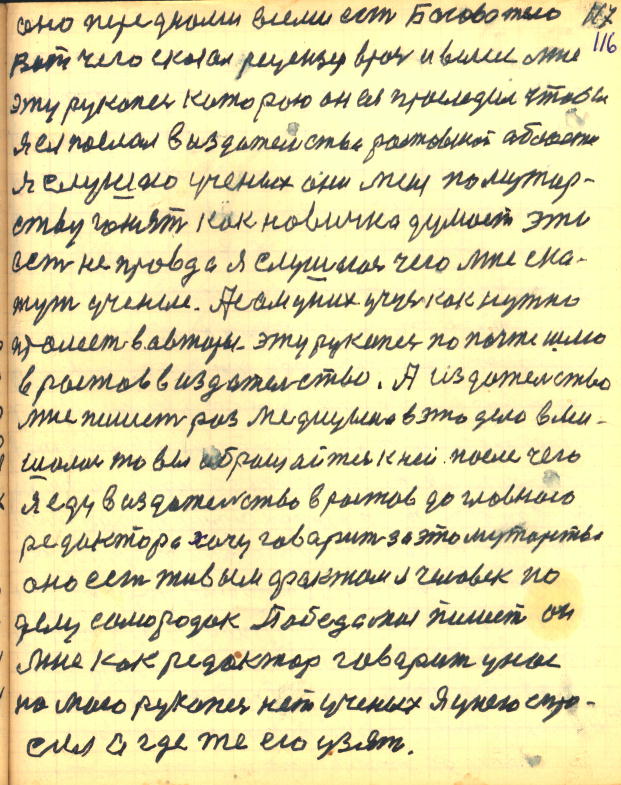 оно перед нами всеми ест Боговото 117
Вот чего сказал рецензер врач и велел мне 116
эту рукопес которою он ей проследил чтобы
я ея послал в издателства ростовской области
Я слушаю ученых они мещ
ству гонят как новичка думает это
ест не правда я слушался чего мне ска-
жут ученые. А сам у них учус как нужно
в авторы. эту рукопес по почте шлю
в ростов в издателство. А издателство
мне пишет раз медицина в это дело вме-
шалас то вы обращайтес к ней после чего
Я еду в издателство в ростов до главного
редактора хочу говарит за это
оно ест живым фрактом я человек по
делу самородок Победа моя пишет он
мне как редактор говарит у нас
на твою рукопес нет ученых я у него спро-
сил а где же его узят.